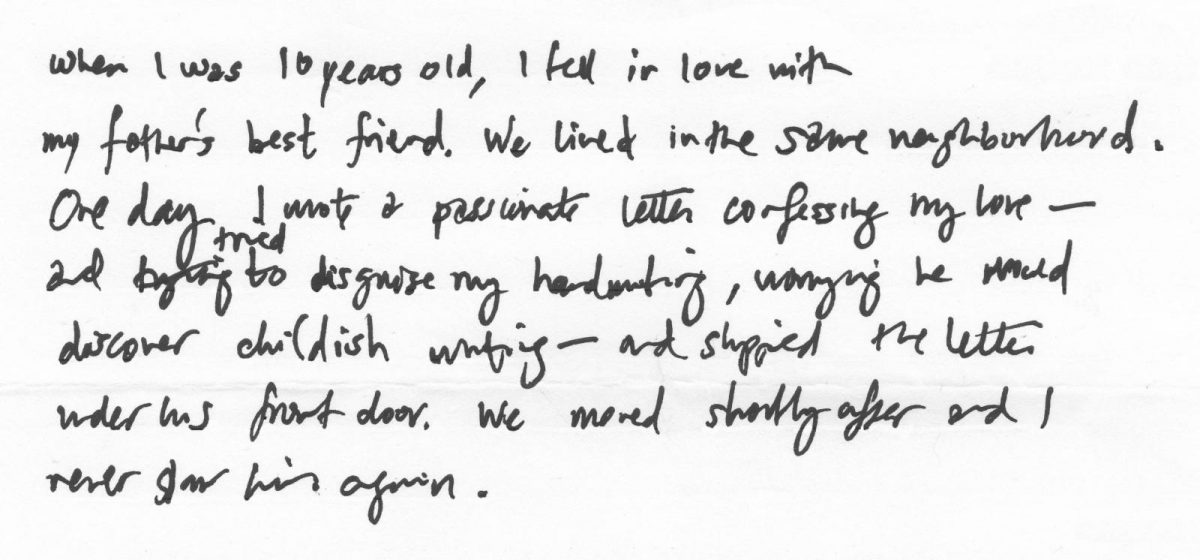 when I was 10 years old, I fell in love with
my father's best friend. We lived in the same neighbourhood.
One day I wrote a passionate letter confessing my love —
tried
and trying to disguise my handwriting, worrying he would
discover childish writing — and slipped the letter
under his front door. We moved shortly after and I
never saw him again.